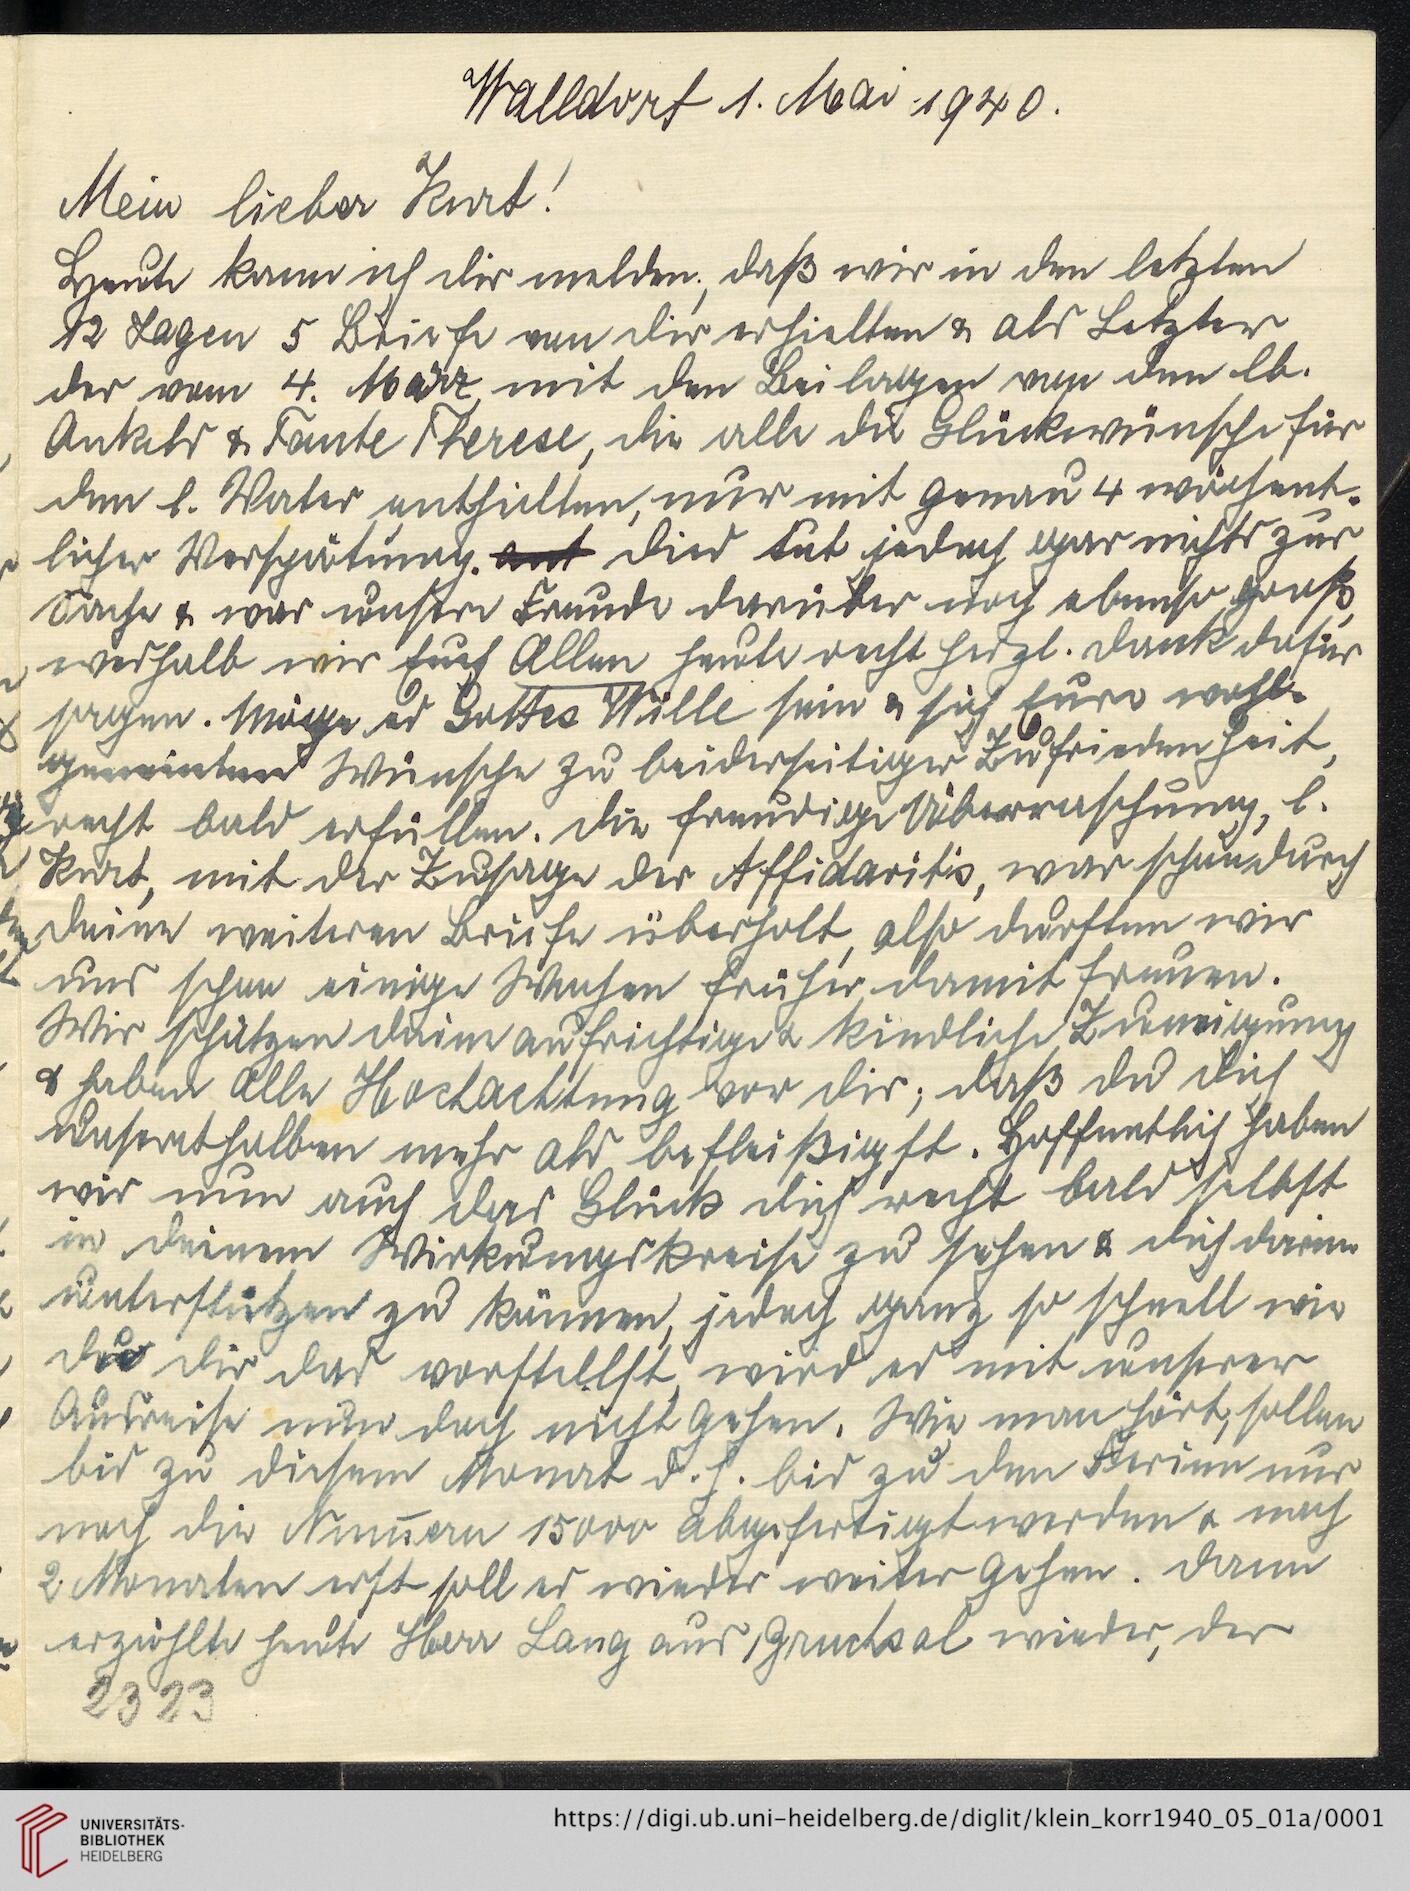 Walldorf 1. Mai 1940.
Mein lieber Kurt!
Heute kann ich dir melden, daß wir in den letzten
12 Tagen 5 Briefe von dir erhielten & als Letzter
der vom 4. März mit den Beilagen von den lb.
Onkels & Tante Therese, die alle die Glückwünsche für
den l. Vater enthielten, nur mit genau 4 wöchent-
licher Verspätung. Dies tut jedoch gar nichts zur
Sache & war unsere Freude darüber noch ebenso groß,
weshalb wir Euch Allen heute recht herzl. Dank dafür
sagen. Möge es Gottes Wille sein & sich Eure wohl-
gemeinten Wünsche zu beiderseitiger Zufriedenheit,
recht bald erfüllen. Die freudige Überraschung, l.
Kurt, mit der Zusage der Affidavits, war schon durch
deine weiteren Briefe überholt, also durften wir
uns schon einige Wochen früher damit freuen.
Wir schätzen deine aufrichtige & kindliche Zuneigung
& haben alle Hochachtung vor dir; daß du dich
unserthalben mehr als befleißigst. Hoffentlich haben
wir nun auch das Glück dich recht bald selbst
in deinem Wirkungskreise zu sehen & dich darin
unterstützen zu können, jedoch ganz so schnell wie
du dir das vorstellst, wird es mit unserer
Ausreise nun doch nicht gehen. Wie man hört, sollen
bis zu diesem Monat d. h. bis zu den Ferien nur
noch die Numern 15000 abgefertigt werden & nach
2 Monaten erst soll es wieder weiter gehen. Dann
erzählte heute Herr Lang aus Gruchsal wieder, der
2323
UNIVERSITÄTS-
BIBLIOTHEK
HEIDELBERG
https://digi.ub.uni-heidelberg.de/diglit/klein_korr1940_05_01a/0001